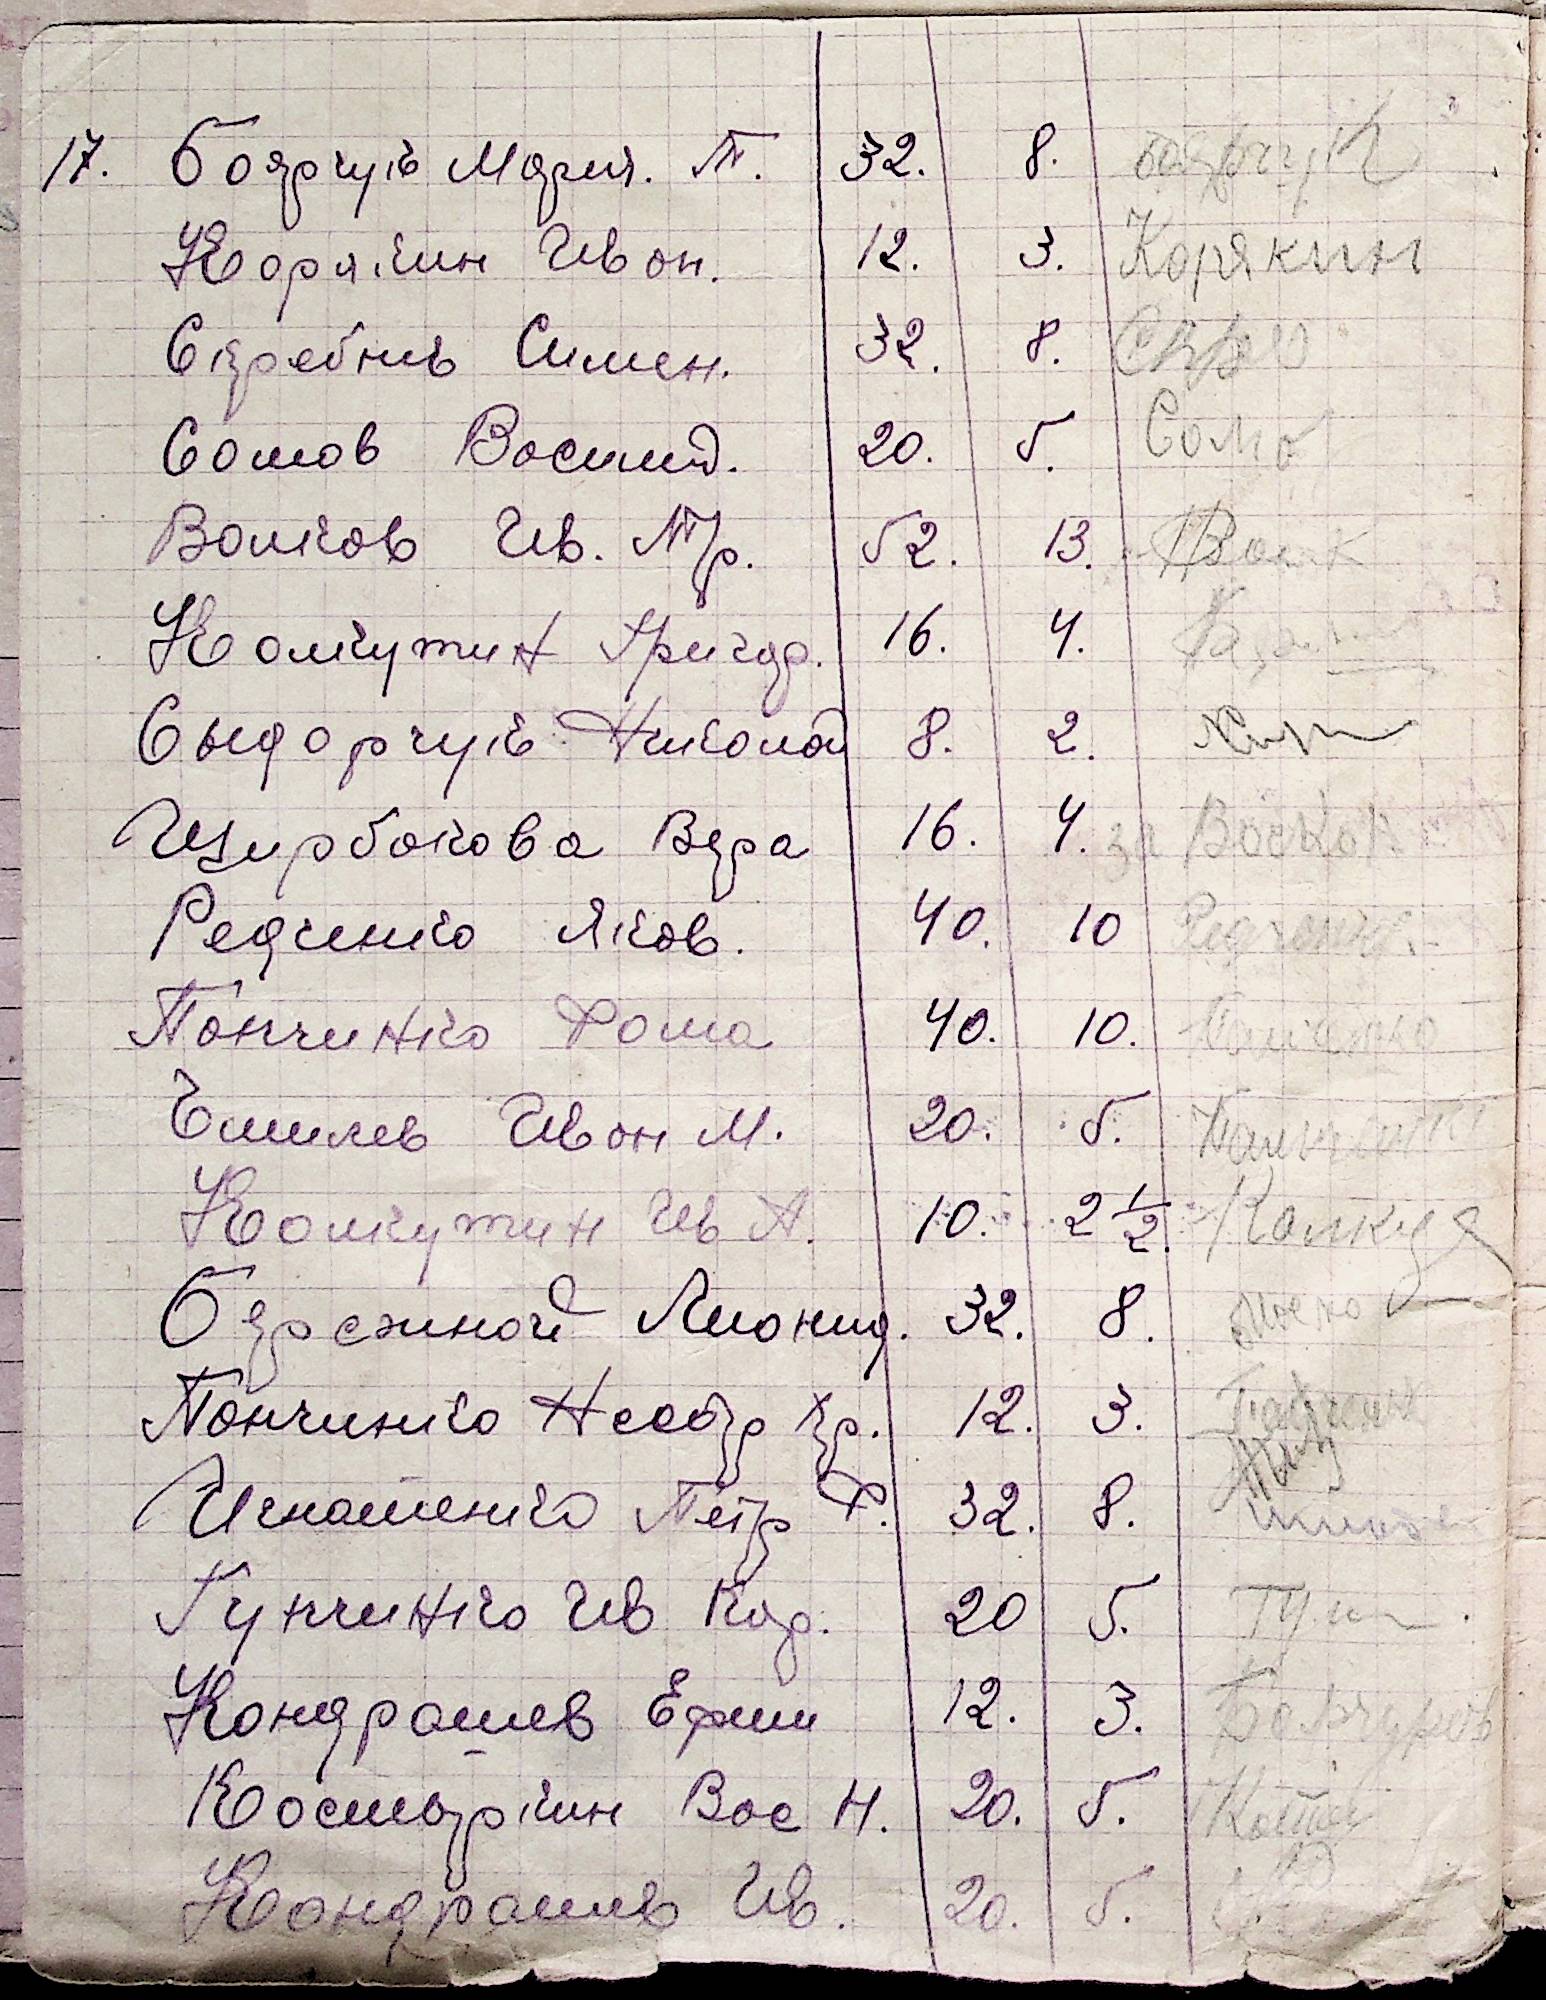 17. Боярчук Мария. Т. 32. 8. Боярчук
Корякин Иван. 12. 3. Корякин
Скребнев Симен. 32. 8.
Сомов Василий. 20. 5. Сомо
Волков Ив. Тр. 52. 13. Волк
Колкутин Григор. 16. 4.
Сыдорчук Николай 8. 2.
Щирбокова Вера 16. 4. за
Редчинко Яков. 40. 10 Редченко
Панчинко Фома 40. 10. Панченко
Емилев Иван М. 20. 5.
Колкутин Ив А. 10. 2 1/2. Колкут
Бережной Лионид. 32. 8.
Панчинко Гр. 12. 3. Панченк
Игнашенко Петр Ф. 32. 8.
Гунчинко Ив Кар. 20 5. Гун
Кондрашев Ефим 12. 3.
Костыркин Вас Н. 20. 5.
Кондрашев Ив. 20. 5.